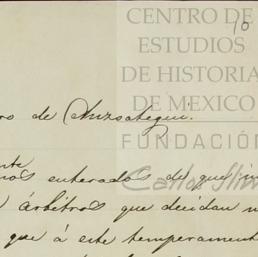 CENTRO DE
ESTUDIOS
DE HISTORIA
DE MEXICO
FUNDACIÓN
Carlos Slim
10
ro de Anzoategui.
enterados de que
árbitros que decidan
que á este temperament